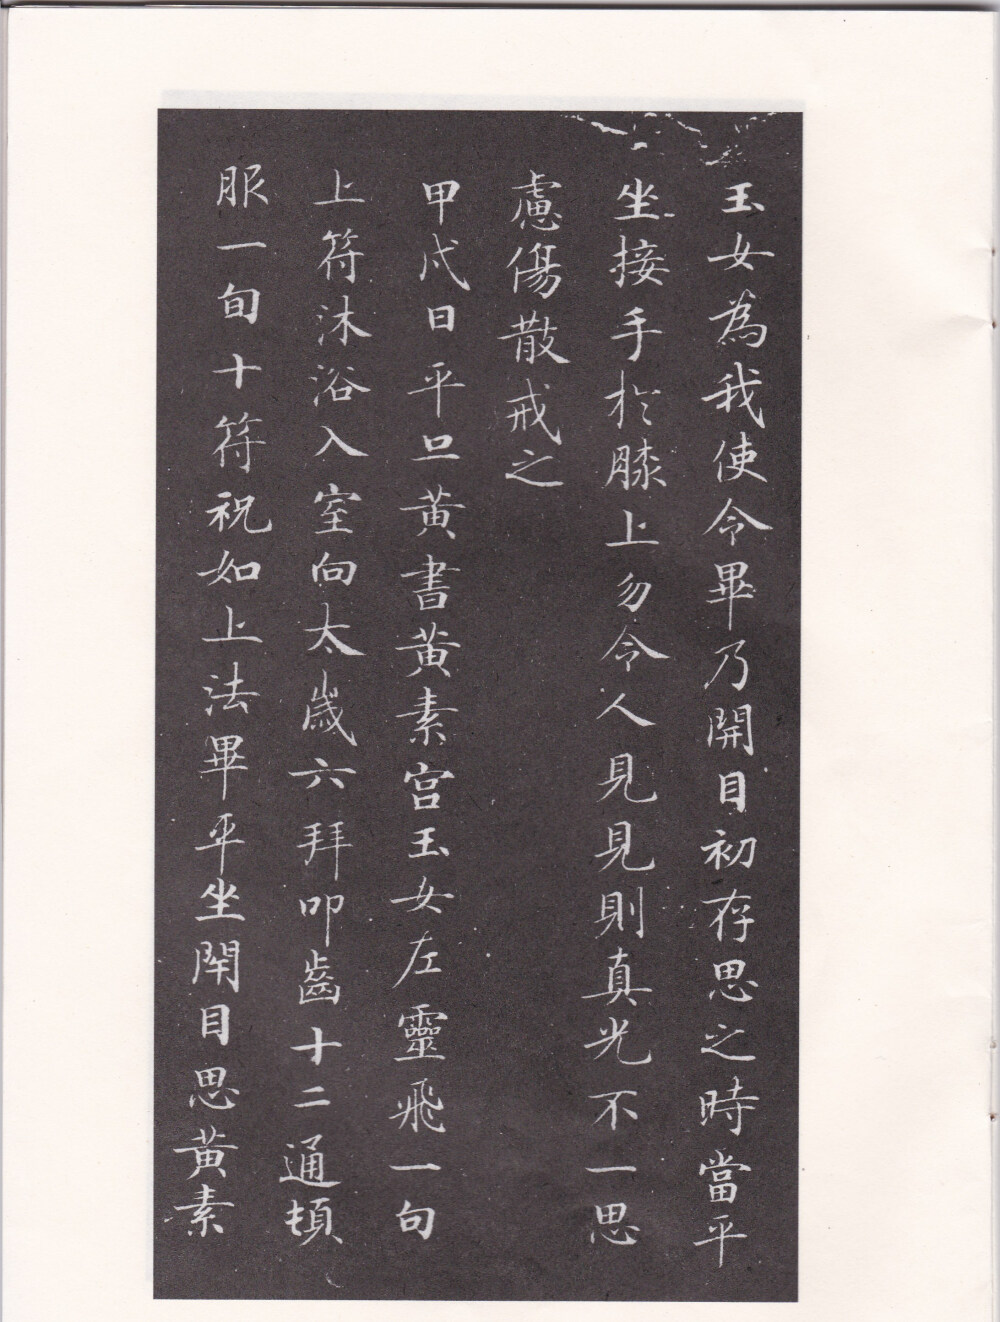 玉女為我使令畢乃開目初存思之時當平
坐接手於膝上勿令人見見則真光不一思
慮傷散戒之
甲戌日平旦黃書黃素宮玉女左靈飛一旬
上符沐浴入室向太歲六拜叩齒十二通頓
服一旬十符祝如上法畢平坐閉目思黃素